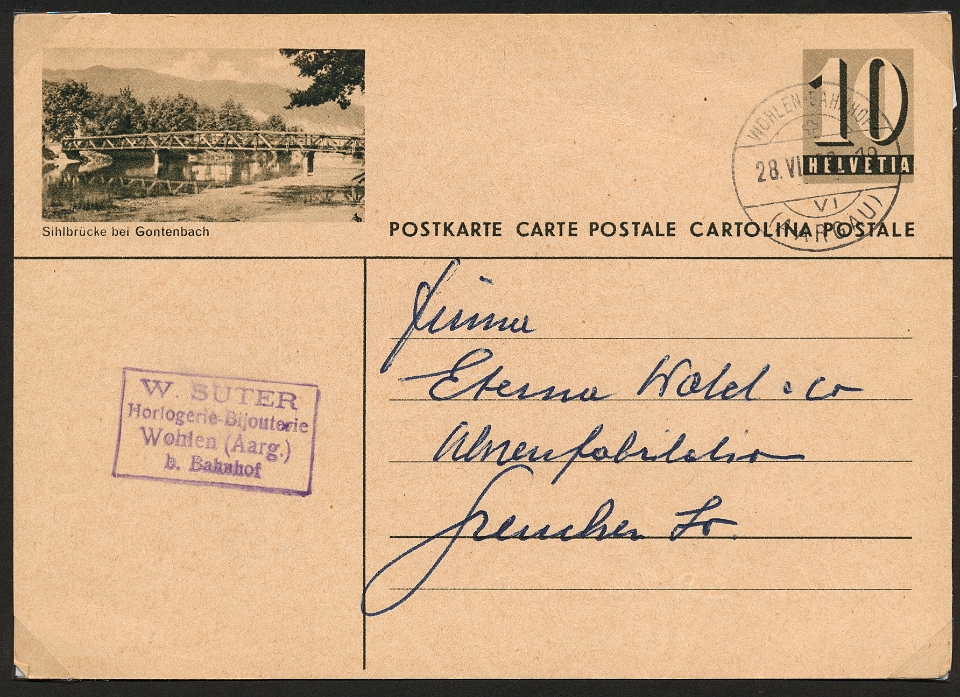 10
HELVETIA
WOHLEN BAHNHOF
28. VI
VI
(AARGAU)
Sihlbrücke bei Gontenbach
POSTKARTE CARTE POSTALE CARTOLINA POSTALE
W. SUTER
Horlogerie-Bijouterie
Wohlen (Aarg.)
b. Bahnhof
Firma
Eterna Watch & Co
Uhrenfabrikation
Grenchen So.